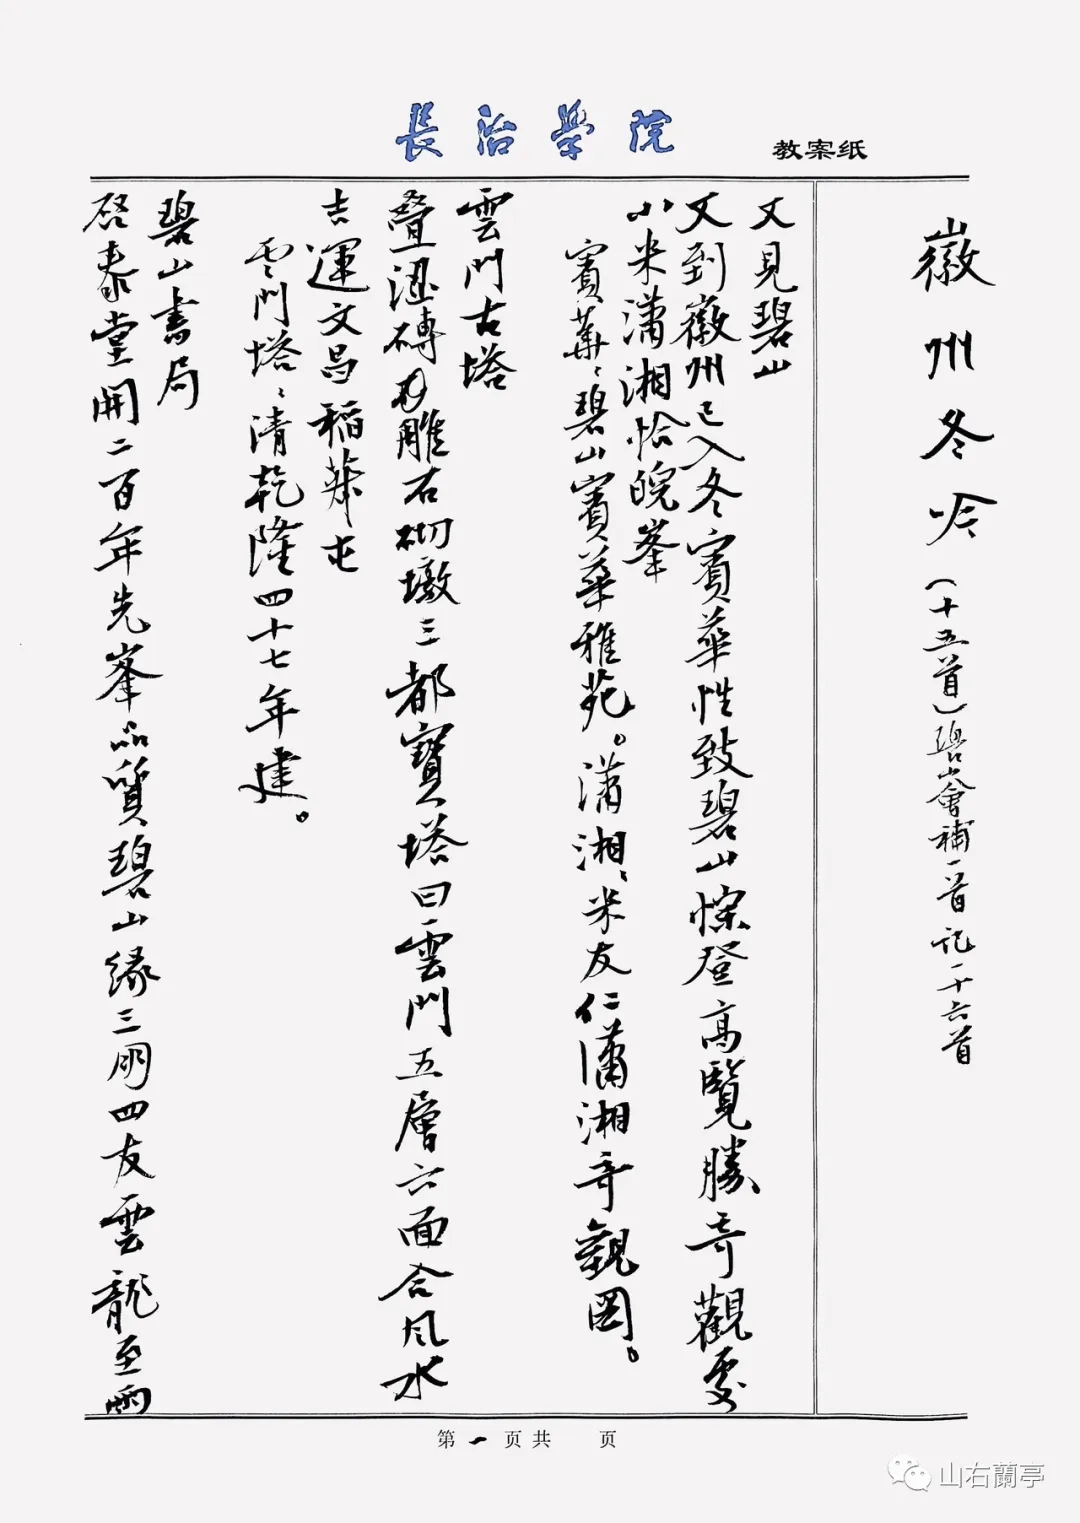 長治學院
教案纸
徽州冬吟(十五首)碧山會補一首記一十六首
又見碧山
又到徽州已入冬賓華性致碧山悰登高覽勝奇觀處
小米瀟湘恰皖峯
賓華、碧山賓華雅苑。瀟湘、米友仁瀟湘奇觀图。
雲門古塔
疊澀磚雕石砌墩三都寶塔曰雲門五層六面合風水
吉運文昌稻華屯
雲門塔、清乾隆四十七年建。
碧山書局
啓泰堂開二百年先峯品質碧山緣三朋四友雲龍至
第一页共 页
山右蘭亭